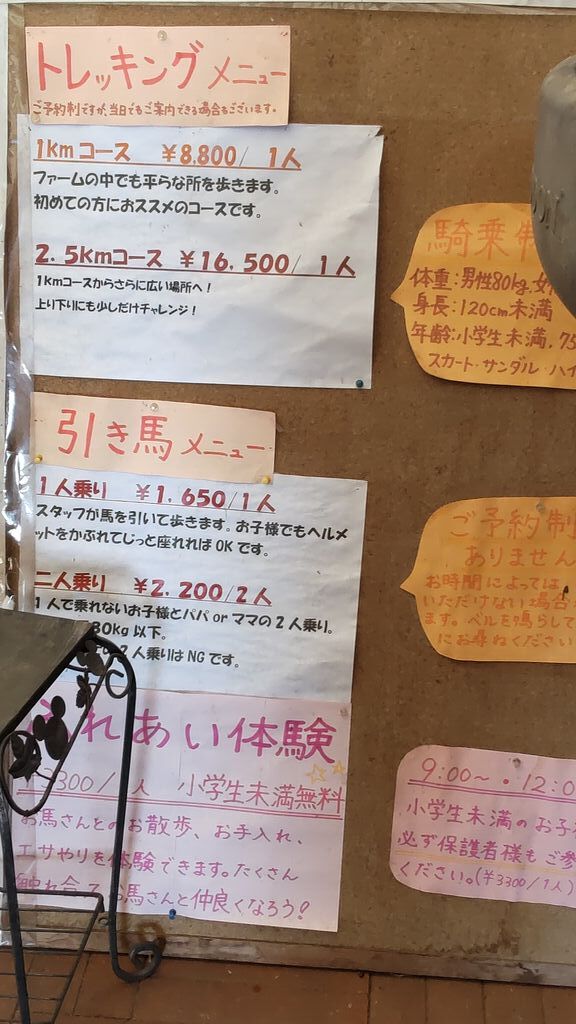 トレッキングメニュー
ご予約制ですが、当日でもご案内できる場合もございます。
1kmコース ￥8,800/ 1人
ファームの中でも平らな所を歩きます。
初めての方におススメのコースです。
2.5kmコース ￥16,500/ 1人
1kmコースからさらに広い場所へ！
上り下りにも少しだけチャレンジ！
引き馬メニュー
1人乗り ￥1,650/1人
スタッフが馬を引いて歩きます。お子様でもヘルメ
ットをかぶれてじっと座れればOKです。
二人乗り ￥2,200/2人
1人で乗れないお子様とパパorママの2人乗り。
80kg以下。
2人乗りはNGです。
れあい体験
300/ 人 小学生未満無料
お馬さんとのお散歩、お手入れ、
エサやりを体験できます。たくさん
触れ合ってお馬さんと仲良くなろう！
騎乗制
体重：男性80kg、女
身長：120cm未満
年齢：小学生未満、75
スカート・サンダル・ハイ
ご予約制
ありません
お時間によっては
いただけない場合
ます。ベルを鳴らして
にお尋ねください
9:00〜・12:0
小学生未満のお子
必ず保護者様もご参
ください。(￥3300/1人)